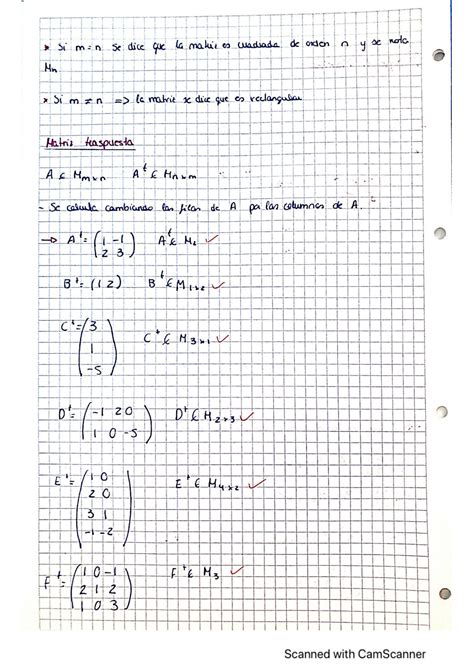 * Si m=n se dice que la matriz es cuadrada de orden n y se nota
Mn
* Si m ≠ n => la matriz se dice que es rectangular
Matriz traspuesta
A ∈ Mm×n A^t ∈ Mn×m
- Se calcula cambiando las filas de A por las columnas de A.
→ A^t = (1 -1 A^t ∈ M2 ✓
2 3)
B^t = (1 2) B^t ∈ M1×2 ✓
C^t = (3
1 C^t ∈ M3×1 ✓
-5)
D^t = (-1 2 0 D^t ∈ M2×3 ✓
1 0 -5)
E^t = (1 0 E^t ∈ M4×2 ✓
2 0
3 1
-1 -2)
F^t = (1 0 -1 F^t ∈ M3 ✓
2 1 2
1 0 3)
Scanned with CamScanner